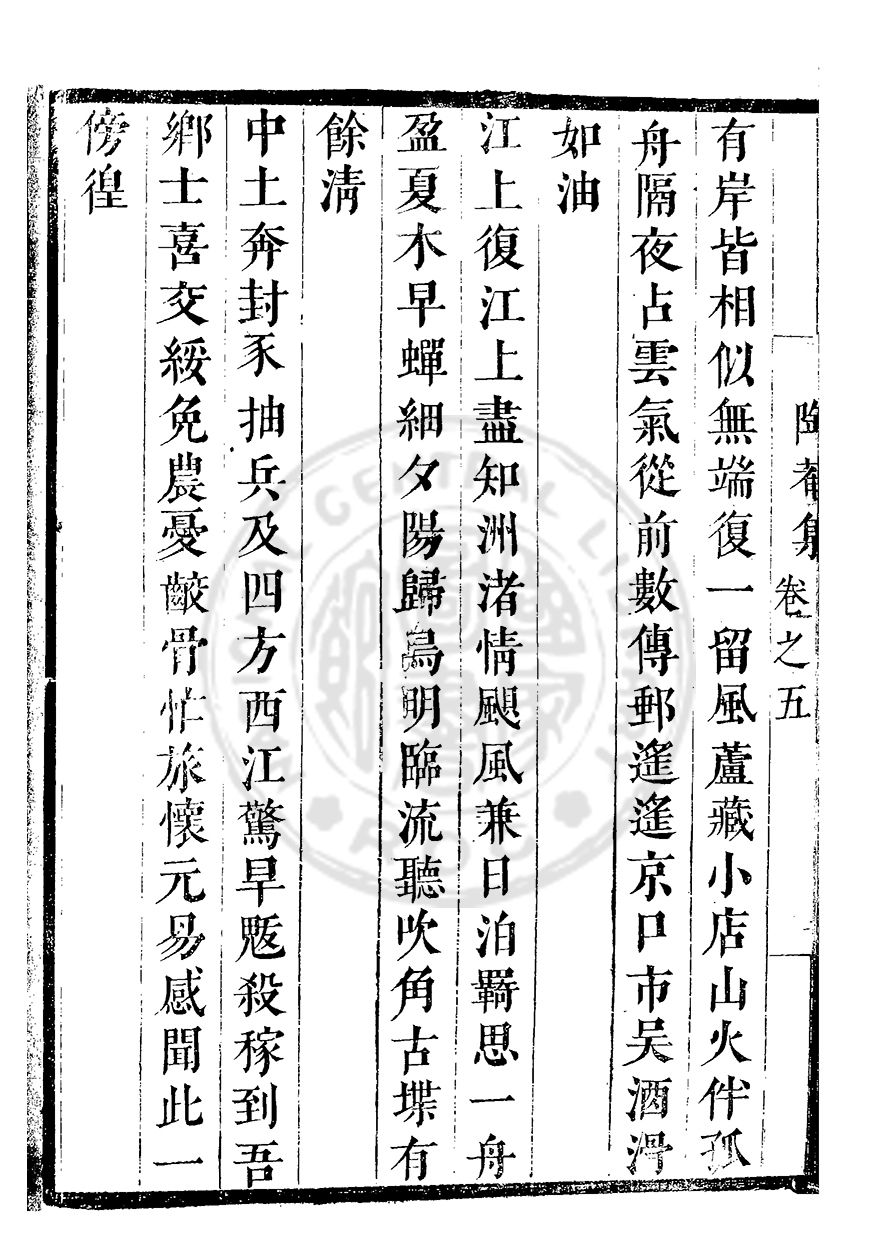 陶菴集 卷之五
有岸皆相似無端復一留風蘆藏小店山火伴孤
舟隔夜占雲氣從前數傳郵遙遙京口市吳酒滑
如油
江上復江上盡知洲渚情颶風兼日泊羇思一舟
盈夏木早蟬細夕陽歸鳥明臨流聽吹角古堞有
餘清
中土奔封豕抽兵及四方西江驚旱魃殺稼到吾
鄉士喜交綏免農憂齩骨忙旅懷元易感聞此一
傍徨